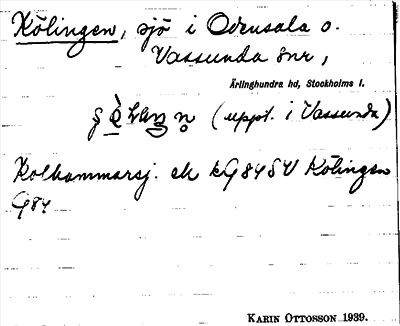 Kölingen, sjö i Odensala o.
Vassunda snr,
Ärlinghundra hd, Stockholms l.
(uppt. i Vassunda)
Kolhammarsj. ek kG 84 SV Kölingen
G84
KARIN OTTOSSON 1939.